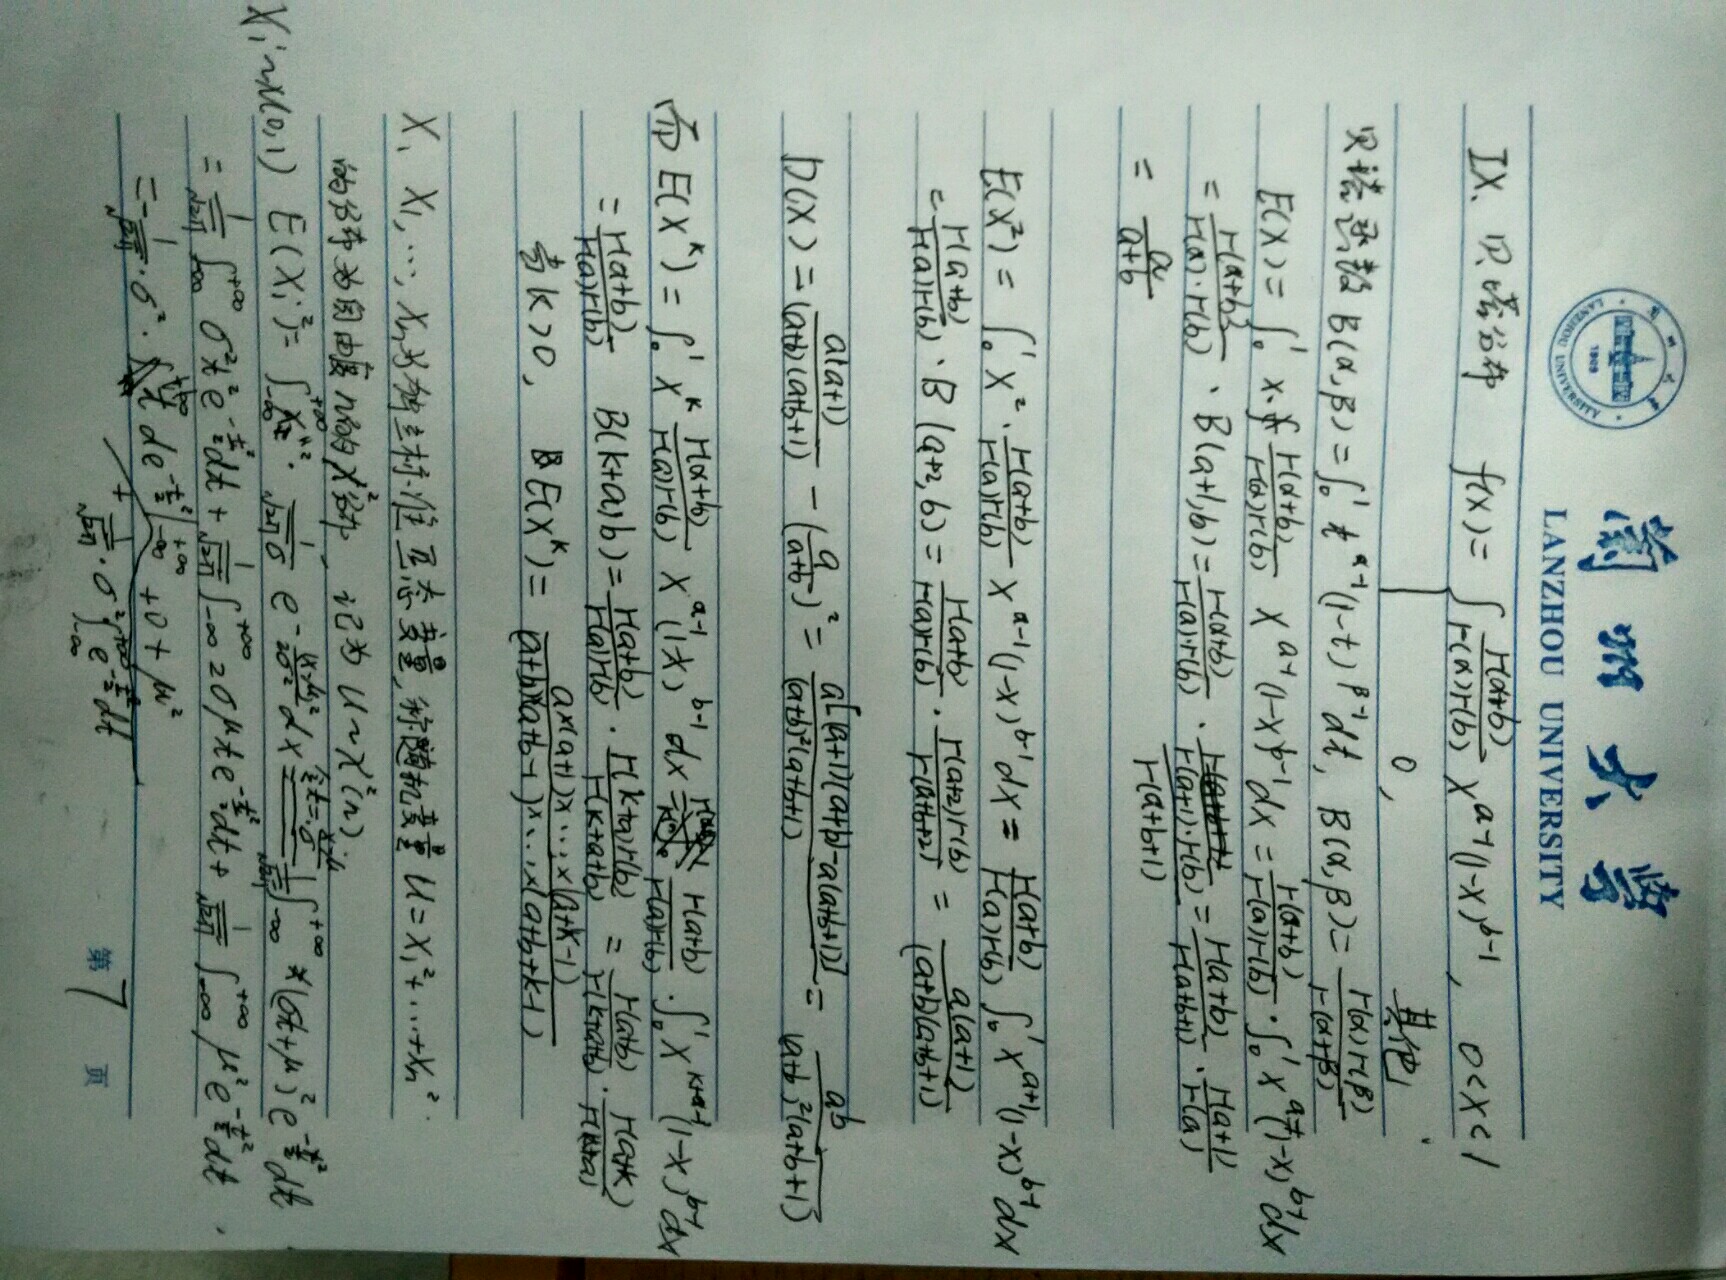 蘭州大學
LANZHOU UNIVERSITY
LANZHOU UNIVERSITY
1909
IX. 贝塔分布 f(x) = { Γ(a+b)/Γ(a)Γ(b) x^{a-1}(1-x)^{b-1}, 0<x<1
0, 其他
贝塔函数 B(α,β) = ∫₀¹ t^{α-1}(1-t)^{β-1} dt, B(α,β) = Γ(α)Γ(β)/Γ(α+β)
E(X) = ∫₀¹ x· Γ(a+b)/Γ(a)Γ(b) x^{a-1}(1-x)^{b-1} dx = Γ(a+b)/Γ(a)Γ(b) · ∫₀¹ x^{a}(1-x)^{b-1} dx
= Γ(a+b)/Γ(a)·Γ(b) · B(a+1,b) = Γ(a+b)/Γ(a)Γ(b) · Γ(a+1)·Γ(b)/Γ(a+b+1) = Γ(a+b)/Γ(a+b+1) · Γ(a+1)/Γ(a)
= a/(a+b)
E(X²) = ∫₀¹ x² · Γ(a+b)/Γ(a)Γ(b) x^{a-1}(1-x)^{b-1} dx = Γ(a+b)/Γ(a)Γ(b) ∫₀¹ x^{a+1}(1-x)^{b-1} dx
= Γ(a+b)/Γ(a)Γ(b) · B(a+2,b) = Γ(a+b)/Γ(a)Γ(b) · Γ(a+2)Γ(b)/Γ(a+b+2) = a(a+1)/(a+b)(a+b+1)
D(X) = a(a+1)/(a+b)(a+b+1) - (a/(a+b))² = a[(a+1)(a+b)-a(a+b+1)]/(a+b)²(a+b+1) = ab/(a+b)²(a+b+1)
而 E(X^k) = ∫₀¹ x^k Γ(a+b)/Γ(a)Γ(b) x^{a-1}(1-x)^{b-1} dx = Γ(a+b)/Γ(a)Γ(b) · ∫₀¹ x^{k+a-1}(1-x)^{b-1} dx
= Γ(a+b)/Γ(a)Γ(b) B(k+a,b) = Γ(a+b)/Γ(a)Γ(b) · Γ(k+a)Γ(b)/Γ(k+a+b) = Γ(a+b)/Γ(k+a+b) · Γ(a+k)/Γ(a)
当 k>0, E(X^k) = a×(a+1)×…×(a+k-1)/(a+b)×(a+b+1)×…×(a+b+k-1)
X. X₁,…,Xn为独立标准正态变量,称随机变量 U = X₁²+…+Xn².
的分布为自由度n的χ²分布, 记为 U~χ²(n).
Xi~N(0,1) E(Xi²) = ∫_{-∞}^{+∞} x² · 1/√2π σ e^{-(x-μ)²/2σ²} dx 令t=(x-μ)/σ 1/√2π ∫_{-∞}^{+∞} (σt+μ)² e^{-t²/2} dt
= 1/√2π ∫_{-∞}^{+∞} σ²t² e^{-t²/2} dt + 1/√2π ∫_{-∞}^{+∞} 2σμt e^{-t²/2} dt + 1/√2π ∫_{-∞}^{+∞} μ² e^{-t²/2} dt.
= -1/√2π · σ² · ∫ t de^{-t²/2} |_{-∞}^{+∞} + 0 + μ²
+ 1/√2π · σ² ∫_{-∞}^{+∞} e^{-t²/2} dt
第 7 页